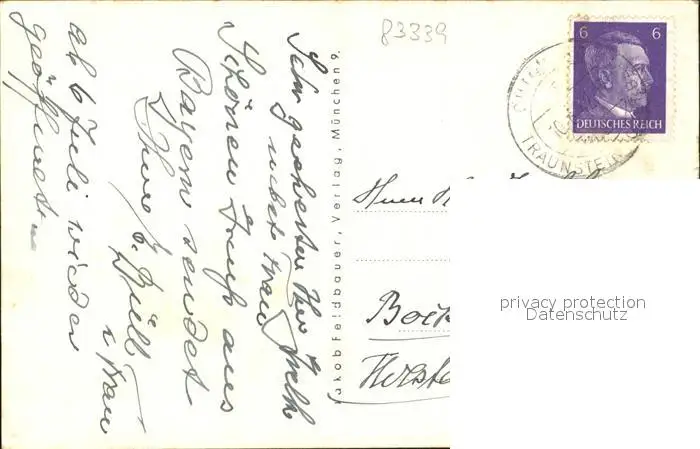 83339
6 6
DEUTSCHES REICH
TRAUNSTEIN
Jakob Feldbauer, Verlag, München 9.
Sehr geehrter Herr
nebst Frau
Schönen Gruß aus
Bayern sendet
Ihre
u Frau
ab 6 Juli wieder
geöffnet
Herrn
privacy protection
Datenschutz